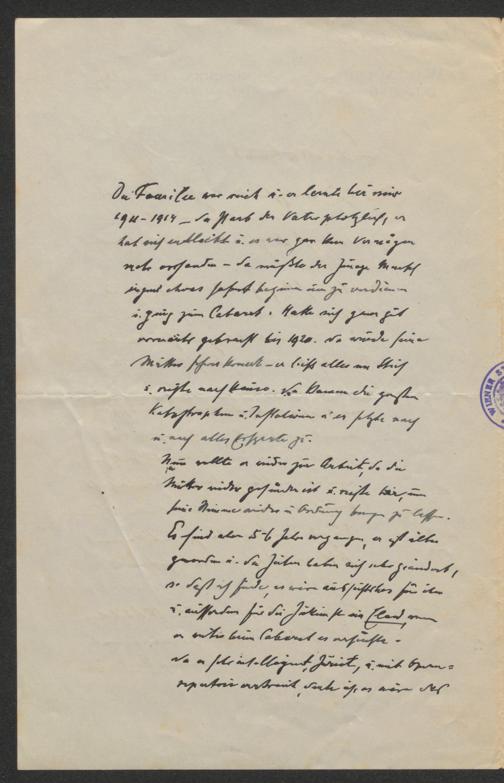 Die Familie war reich u. er lernte bei mir
1911-1914 – da starb der Vater plötzlich, er
hat sich entleibt u. es war gar kein Vermögen
mehr vorhanden – da mußte der junge Mensch
irgend etwas sofort beginnen um zu verdienen
u. ging zum Cabaret. Hatte sich ganz gut
vorwärts gebracht bis 1920. da wurde seine
Mutter schwer krank – er ließ alles im Stich
u. reiste nach Hause. Da kamen die großen
Katastrophen u. Inflationen u. er setzte nach
u. nach alles Ersparte zu.
Nun wollte er wieder zur Arbeit, da die
Mutter wieder gesündet ist u. reiste her, um
seine Stimme wieder in Ordnung bringen zu lassen.
Es sind aber 5-6 Jahre vergangen, er ist älter
geworden u. die Zeiten haben sich sehr geändert,
so daß ich finde, es wäre aussichtslos für ihn
u. außerdem für die Zukunft ein Elend, wenn
er weiter beim Cabaret es versuchte –
da er sehr intelligent, Jurist, u. mit Opern=
repertoir vertraut, dachte ich, es wäre das
WIENER